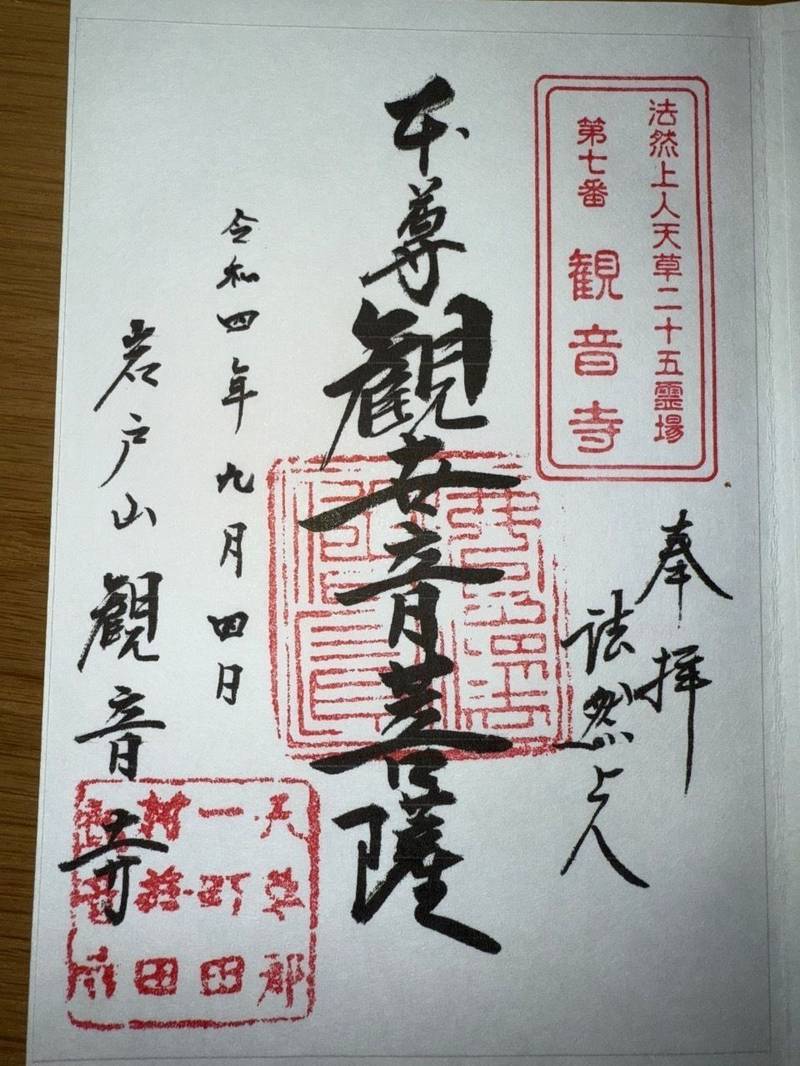 法然上人天草二十五霊場
第七番 観音寺
奉拝
法然上人
本尊 觀世音菩薩
令和四年九月四日
岩戸山 觀音寺
天草郡
一町田
村益田
観音寺